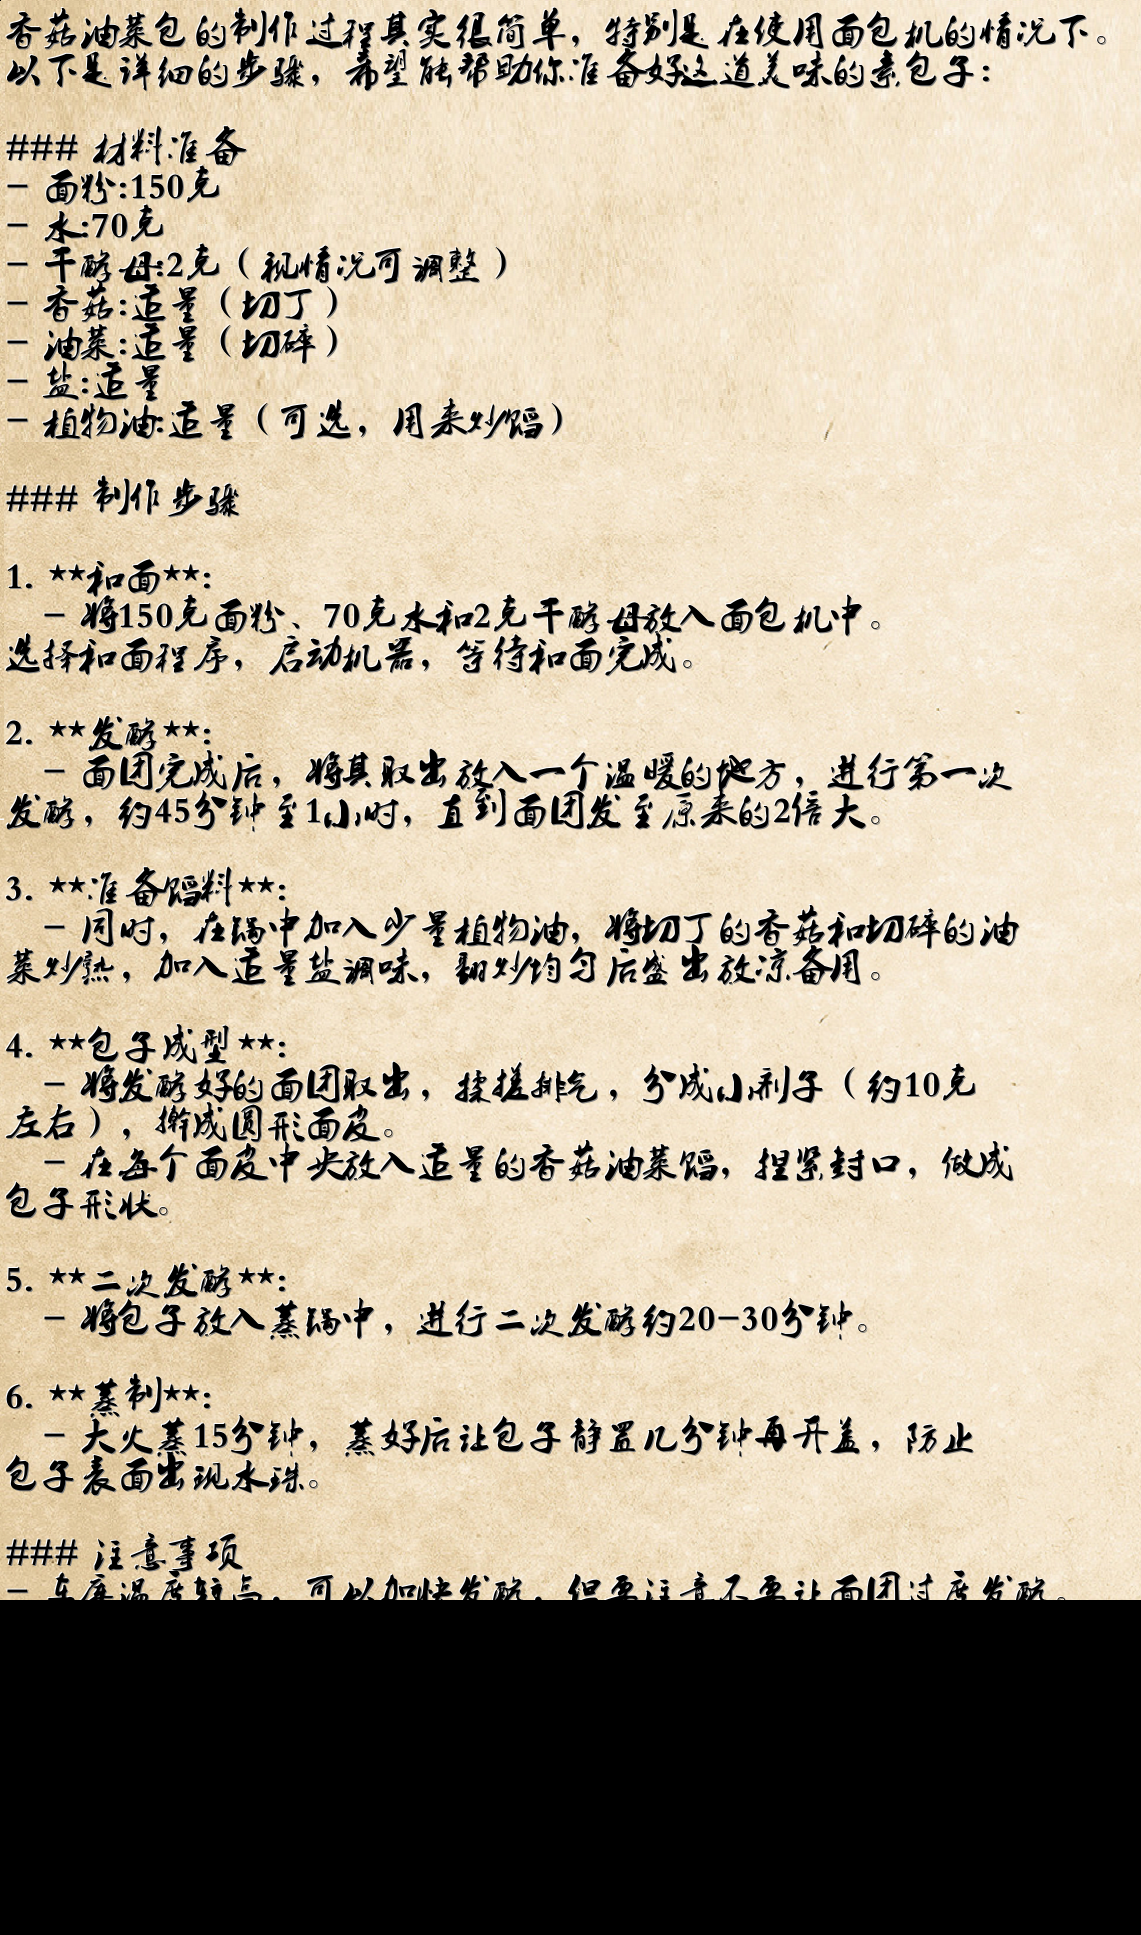 香菇油菜包的制作过程其实很简单，特别是在使用面包机的情况下。
以下是详细的步骤，希望能帮助你准备好这道美味的素包子：
### 材料准备
- 面粉:150克
- 水:70克
- 干酵母:2克（视情况可调整）
- 香菇:适量（切丁）
- 油菜:适量（切碎）
- 盐:适量
- 植物油:适量（可选，用来炒馅）
### 制作步骤
1. **和面**:
- 将150克面粉、70克水和2克干酵母放入面包机中。
选择和面程序，启动机器，等待和面完成。
2. **发酵**:
- 面团完成后，将其取出放入一个温暖的地方，进行第一次
发酵，约45分钟至1小时，直到面团发至原来的2倍大。
3. **准备馅料**:
- 同时，在锅中加入少量植物油，将切丁的香菇和切碎的油
菜炒熟，加入适量盐调味，翻炒均匀后盛出放凉备用。
4. **包子成型**:
- 将发酵好的面团取出，揉搓排气，分成小剂子（约10克
左右），擀成圆形面皮。
- 在每个面皮中央放入适量的香菇油菜馅，捏紧封口，做成
包子形状。
5. **二次发酵**:
- 将包子放入蒸锅中，进行二次发酵约20-30分钟。
6. **蒸制**:
- 大火蒸15分钟，蒸好后让包子静置几分钟再开盖，防止
包子表面出现水珠。
### 注意事项
- 东库温度较高，可以加快发酵，但要注意不要让面团过度发酵。